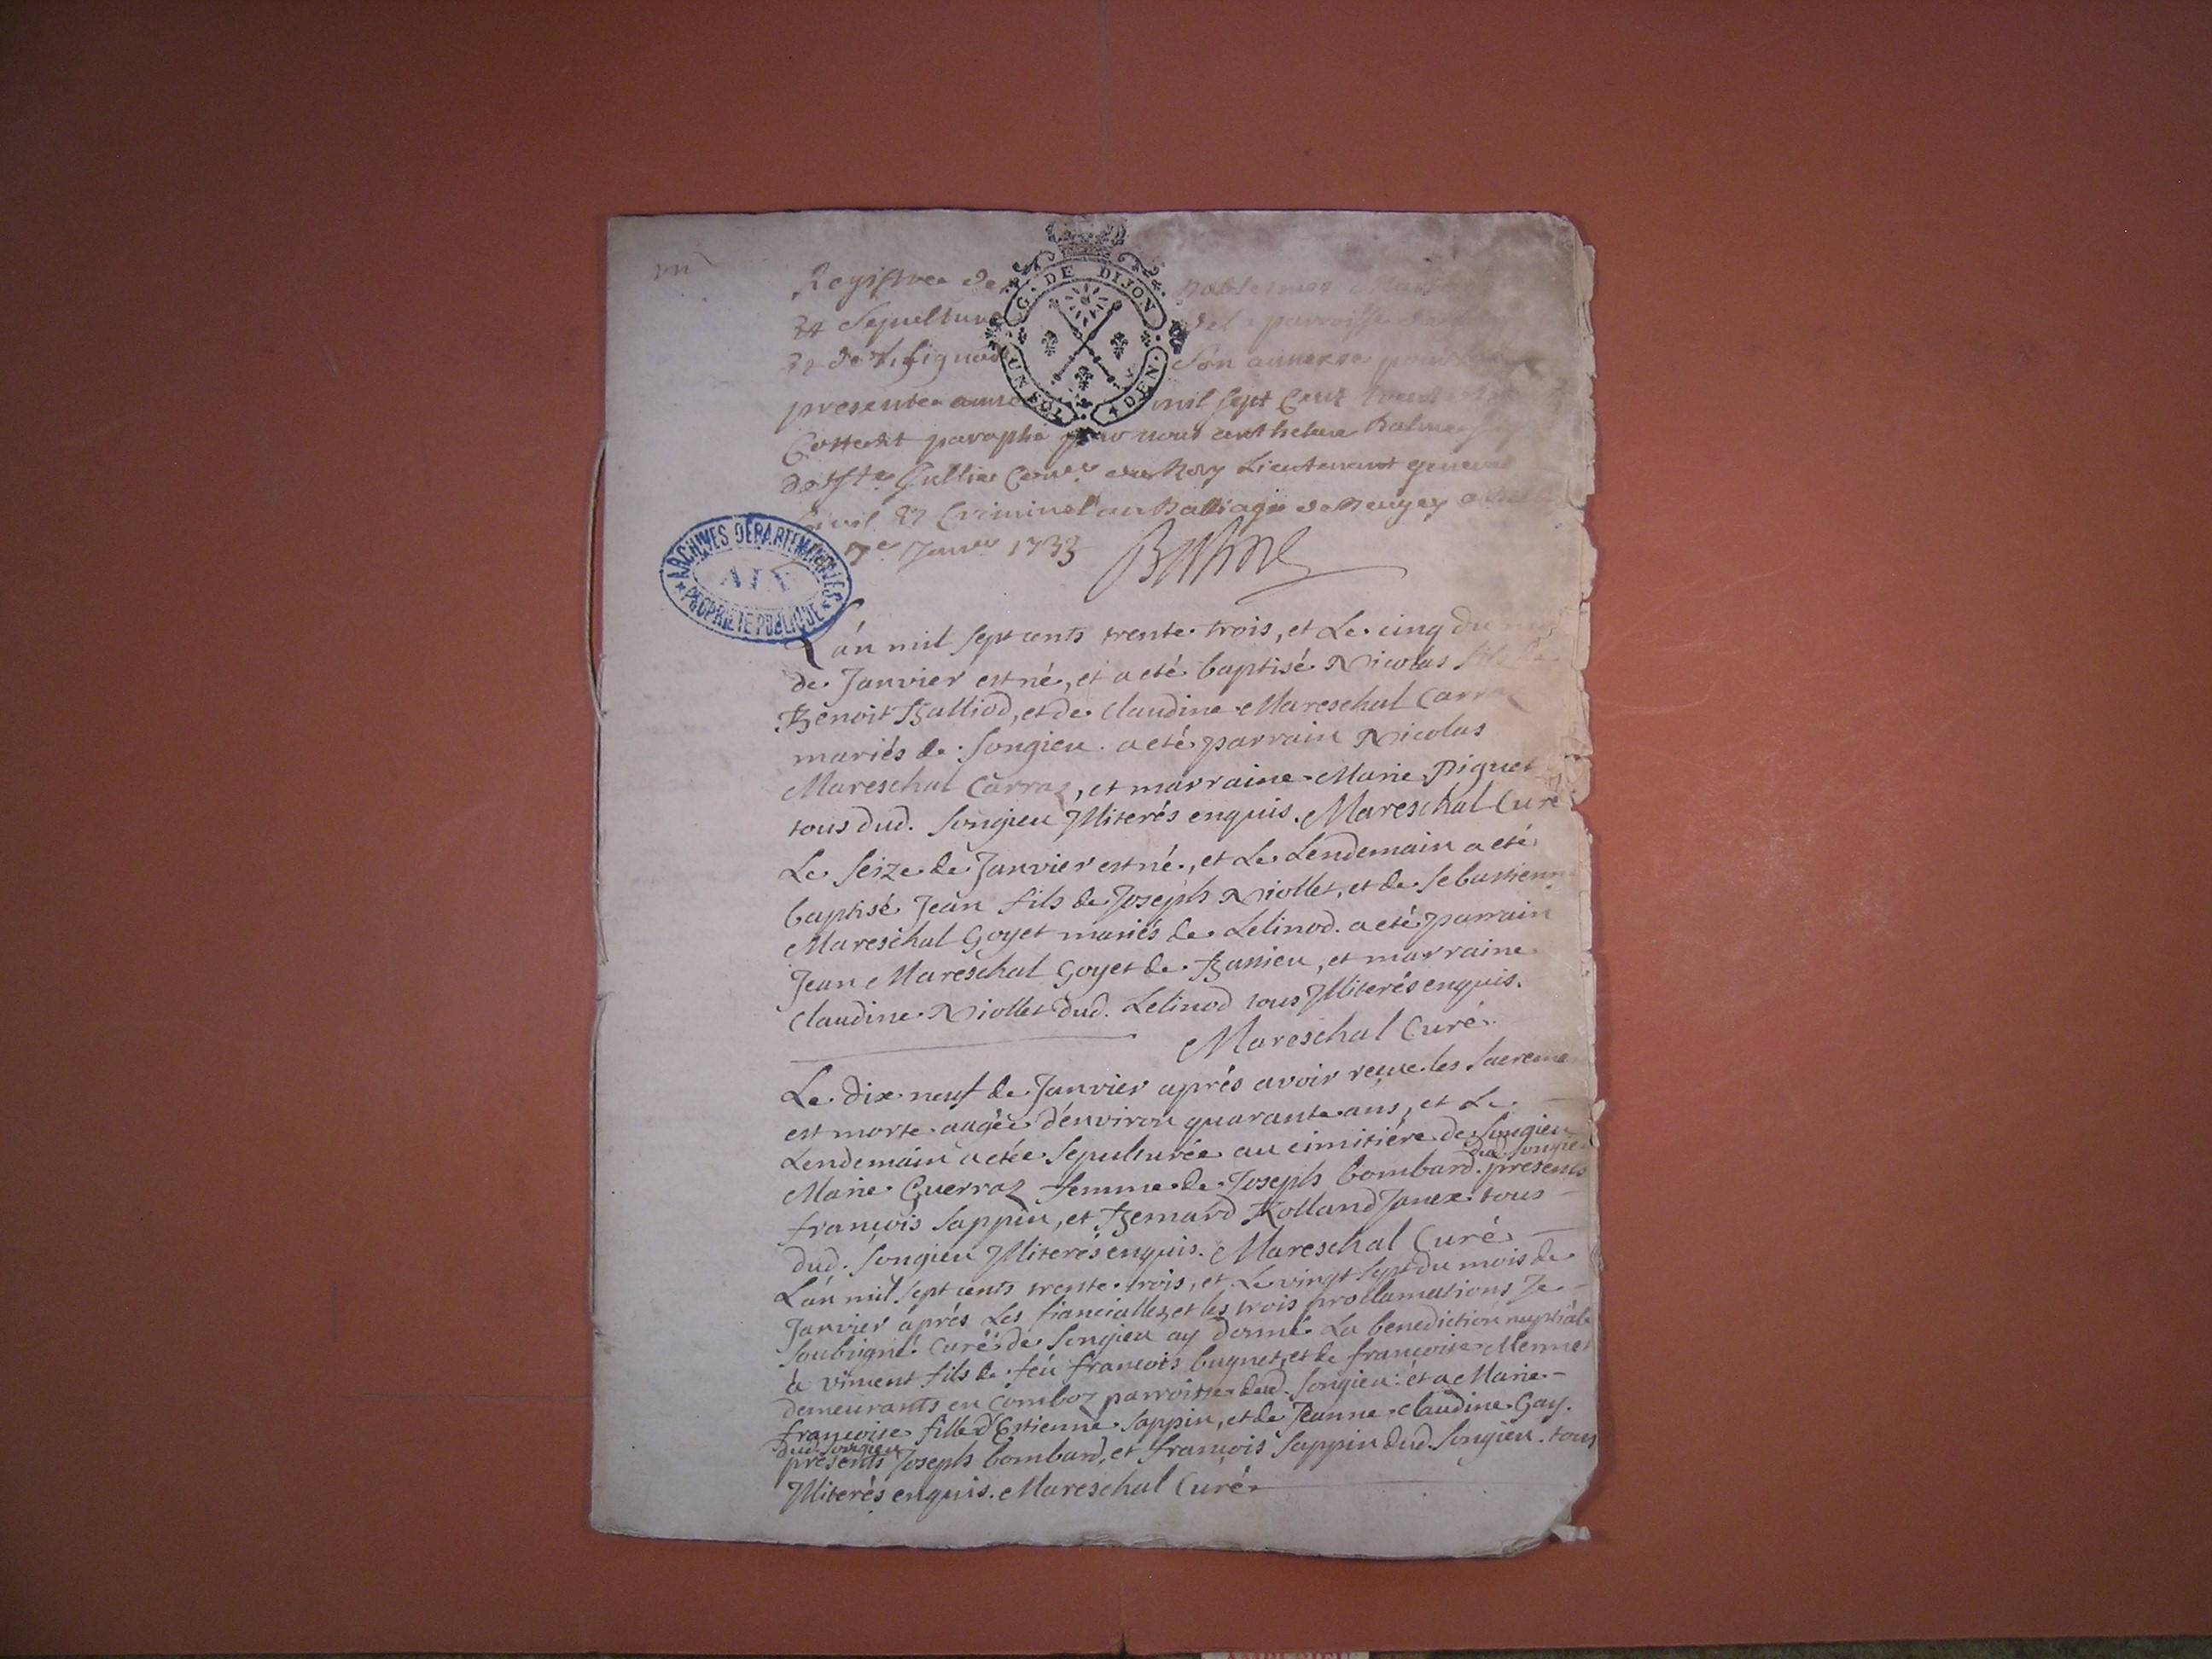 G. DE DIJON
UN SOL 4 DEN.
Registre de Batesmes
et Sepulture de la parroisse
et de son annexe
presente mil sept Cent
Cotte et paraphe par nous anthelme Balme
de Ste Jullie Conser du Roy Lieutenant general
Civil et Criminel au Balliage de Beugey
7e Janer 1733 Balme
ARCHIVES DEPARTEMENTALES
AIN
PROPRIETE PUBLIQUE
L'an mil sept cents trente trois, et Le cinq du
de Janvier est né, et a eté baptisé Nicolas fils de
Benoit Balliod, et de Claudine Mareschal Carraz
mariés de Songieu. a eté parrain Nicolas
Mareschal Carraz, et marraine Marie Piguet
tous dud. Songieu Illiterés enquis. Mareschal Curé
Le seize de Janvier est né, et Le Lendemain a eté
baptisé Jean fils de Joseph Niollet, et de Sebastienne
Mareschal Goyet mariés de Lelinod. a eté parrain
Jean Mareschal Goyet de Bassieu, et marraine
Claudine Niollet dud. Lelinod tous Illiterés enquis.
Mareschal Curé.
Le dix neuf de Janvier aprés avoir reçue les Sacreme
est morte aagée d'environ quarante ans, et Le
Lendemain a etée Sepulturée au cimitiére de Songieu
dud Songieu
Marie Guerraz femme de Joseph bombard. presents
françois Sappin, et Bernard Rolland Janex tous
dud. Songieu Illiterés enquis. Mareschal Curé
L'an mil sept cents trente trois, et Le vingt sept du mois de
Janvier aprés Les fiancialles, et les trois proclamations Je
Soubsigné Curé de Songieu ay donné La benediction nuptiale
à vincent fils de feu françois bugnet, et de françoise Mermet
demeurants en Comboz parroisse dud. Songieu: et a Marie
françoise fille d'Estienne Sappin, et de Jeanne Claudine Gay.
dud. Songieu
présents Joseph bombard, et françois Sappin dud. Songieu. tous
Illiterés enquis. Mareschal Curé